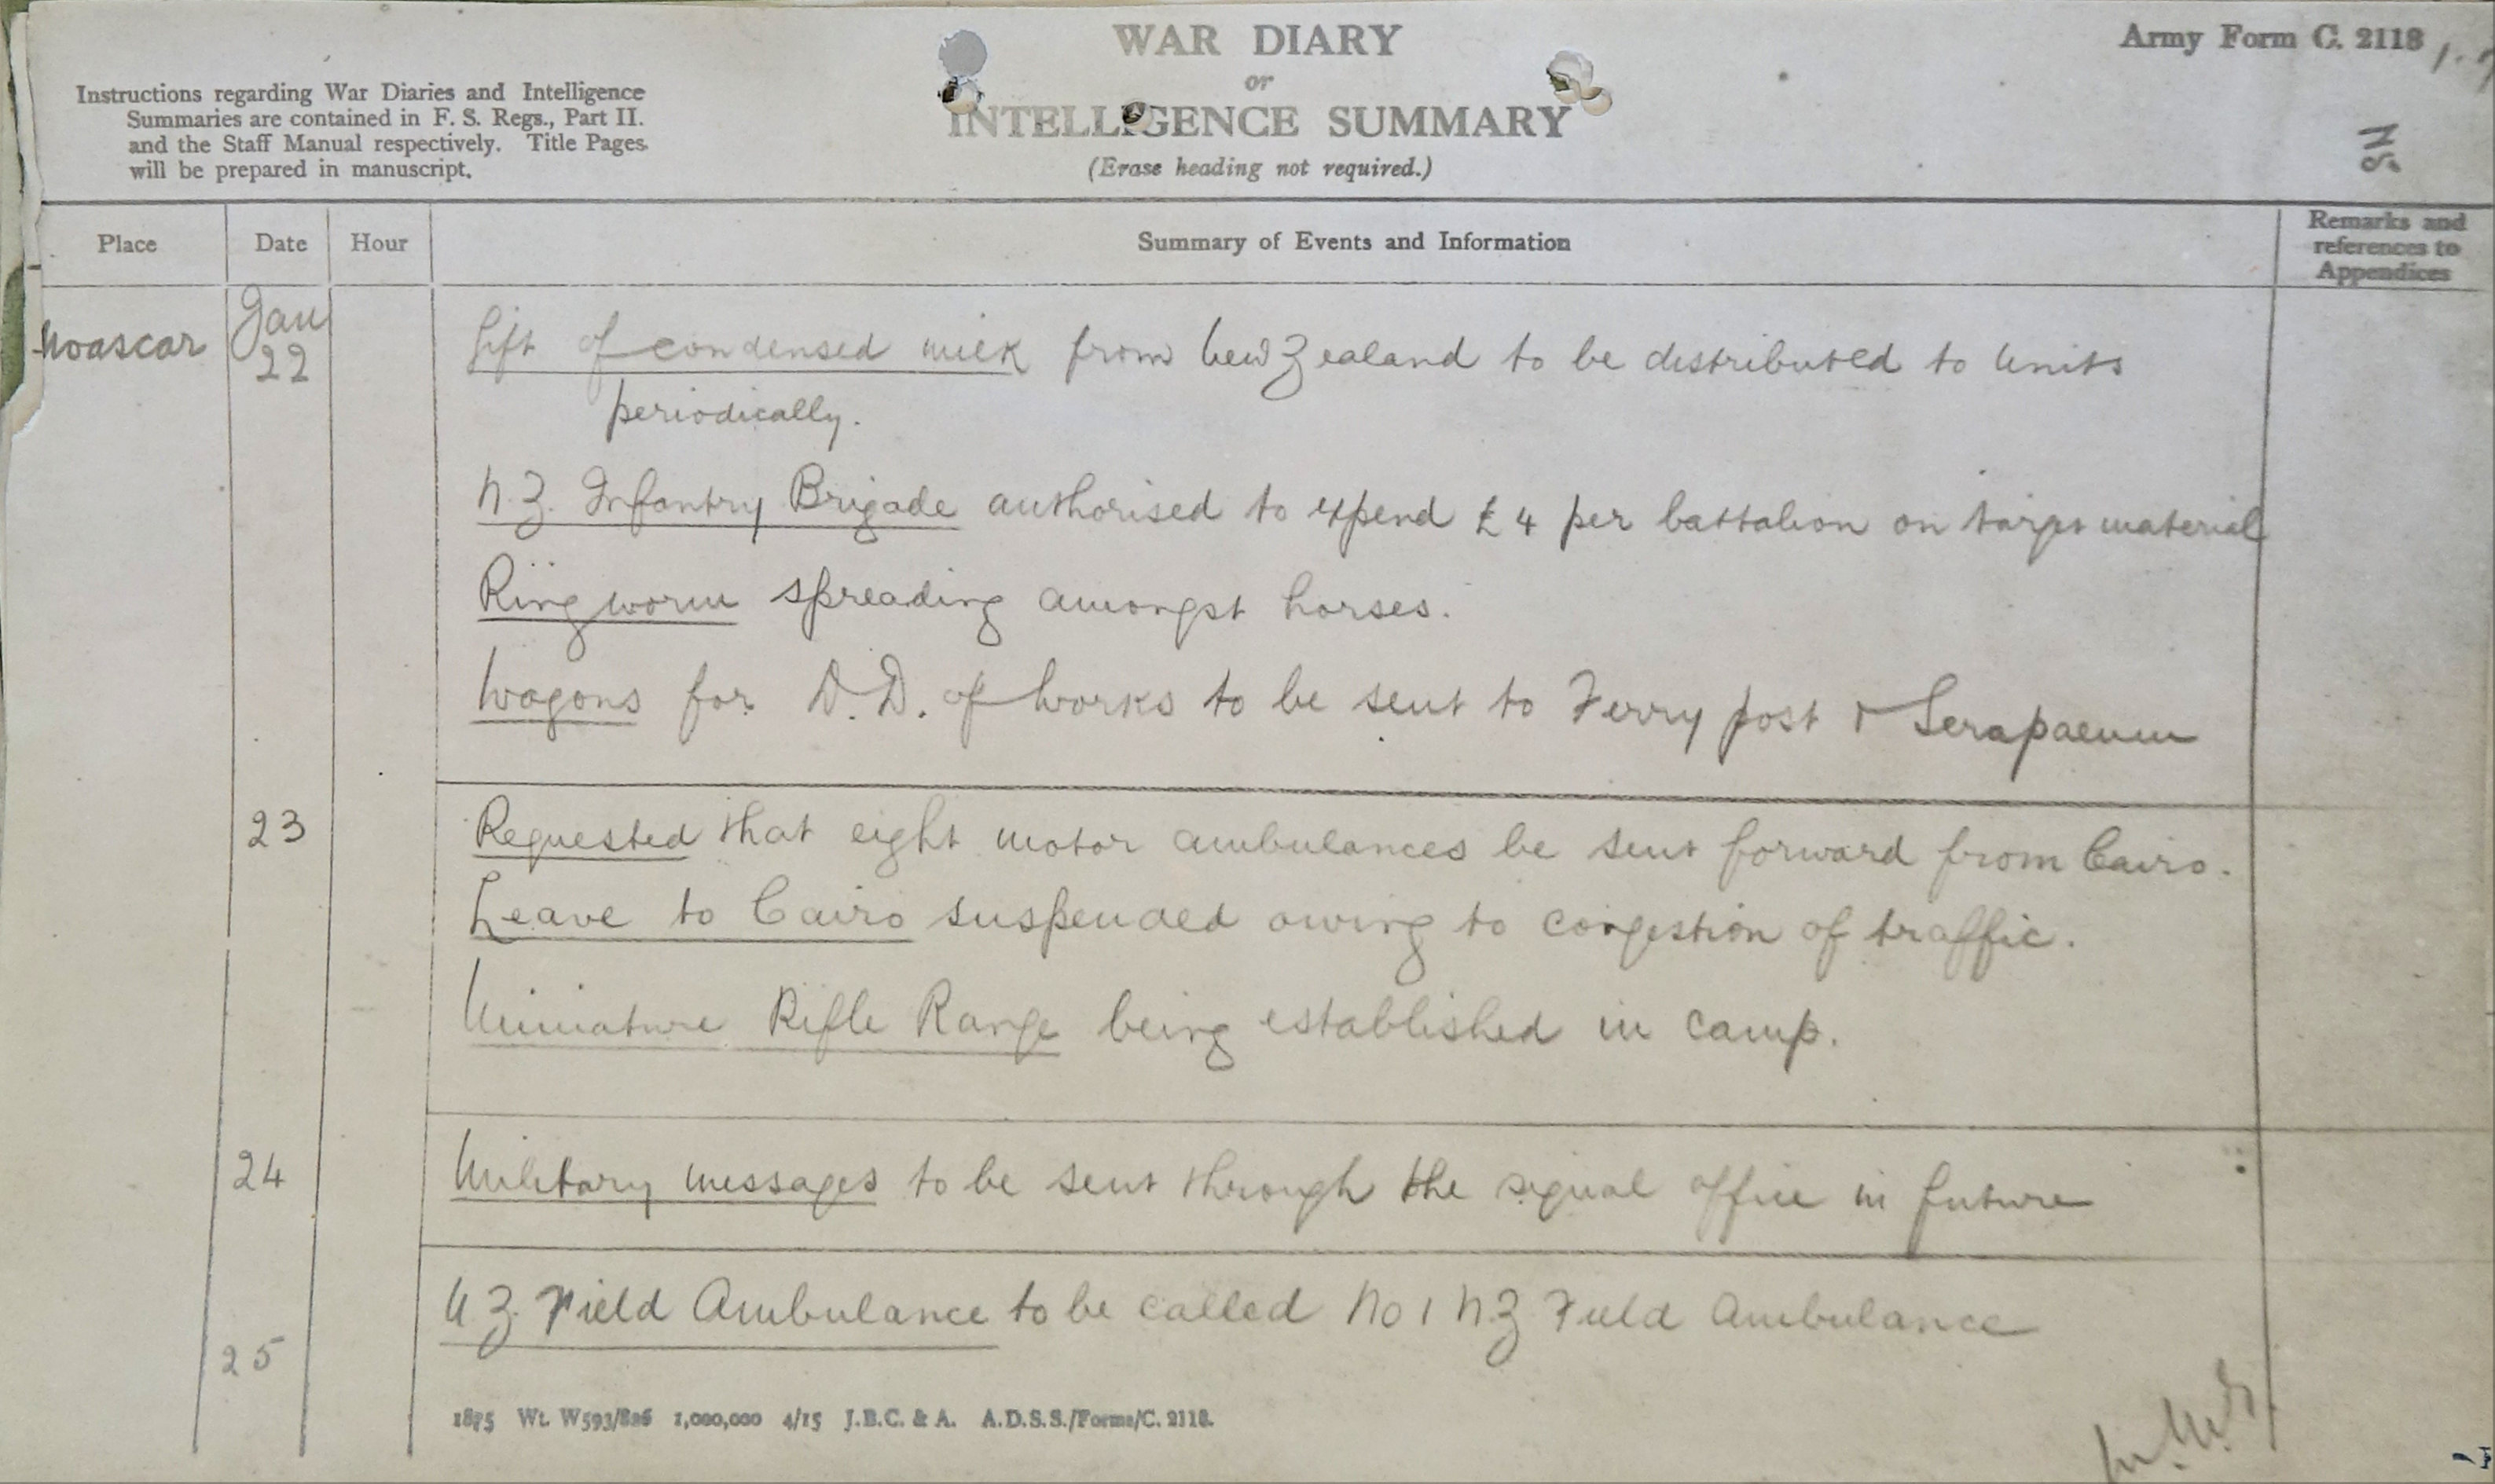 WAR DIARY
or
INTELLIGENCE SUMMARY
(Erase heading not required.)
Army Form C. 2118
Instructions regarding War Diaries and Intelligence
Summaries are contained in F. S. Regs., Part II.
and the Staff Manual respectively. Title Pages
will be prepared in manuscript.
Place Date Hour Summary of Events and Information Remarks and
references to
Appendices
Moascar Jan
22 Gift of condensed milk from New Zealand to be distributed to Units
periodically.
N.Z. Infantry Brigade authorised to expend £4 per battalion on target material
Ringworm spreading amongst horses.
Wagons for D.D. of Works to be sent to Ferry post & Serapaeum
23 Requested that eight motor ambulances be sent forward from Cairo.
Leave to Cairo suspended owing to congestion of traffic.
Miniature Rifle Range being established in camp.
24 Military messages to be sent through the signal office in future
25 N.Z. Field Ambulance to be called No 1 N.Z Field Ambulance
1875 Wt. W593/826 1,000,000 4/15 J.B.C. & A. A.D.S.S./Forms/C. 2118.